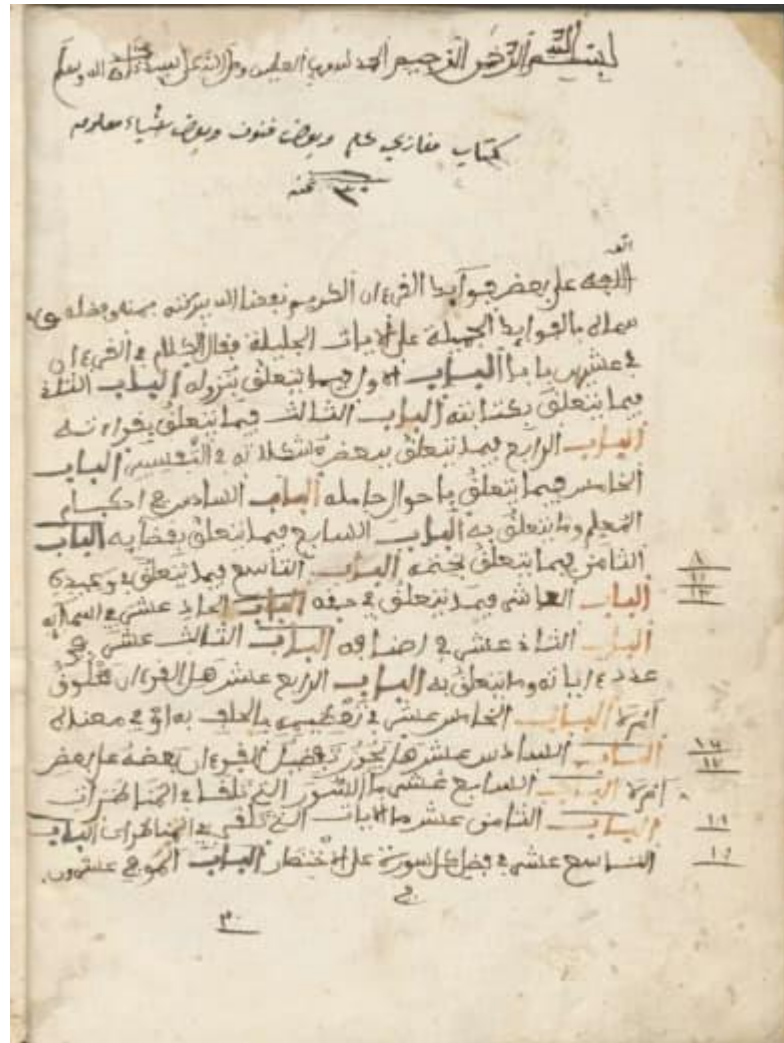 بسم الله الرحمن الرحيم الحمد لله رب العالمين وصلى الله على سيدنا محمد وآله وسلم
كتاب مغازي عم وبعض فنون وبعض أشياء معلومه
٣٠
على بعض فوايد القرءان الكريم نفعنا الله ببركته بمنه وفضله
بالفوايد الجميلة على الايات الجليلة فقال الكلام في القرءان
في عشرين بابا الباب الاول فيما يتعلق بنزوله الباب الثاني
فيما يتعلق بكتابته الباب الثالث فيما يتعلق بقراءته
الباب الرابع فيما يتعلق ببعض مشكلاته في التفسير الباب
الخامس فيما يتعلق باحوال حامله الباب السادس في احكام
المعلم وما يتعلق به الباب السابع فيما يتعلق بفضايله الباب
الثامن فيما يتعلق بختمه الباب التاسع فيما يتعلق في
الباب العاشر فيما يتعلق في حقه الباب الحاد عشر في اسمايه
الباب الثاني عشر في الباب الثالث عشر في
عدد ءاياته وما يتعلق به الباب الرابع عشر هل القرءان مخلوق
ام لا الباب الخامس عشر في تعظيمه بالحلف به او في معناه
الباب السادس عشر هل يجوز تفضيل القرءان بعضه على بعض
ام لا الباب السابع عشر ما السور التي تلقى في المناظرات
الباب الثامن عشر ما الايات التي تلقى في المناظرات الباب
التاسع عشر في فضل كل سورة على الاختصار الباب الموفي عشرون
في
٣٠